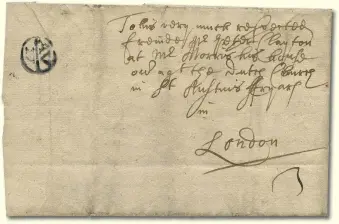 To his very much respected
freinde Mr Peter Paxton
at Mr Morris his house
ov agt the Dutch Church
in St Austins fryars
in
London